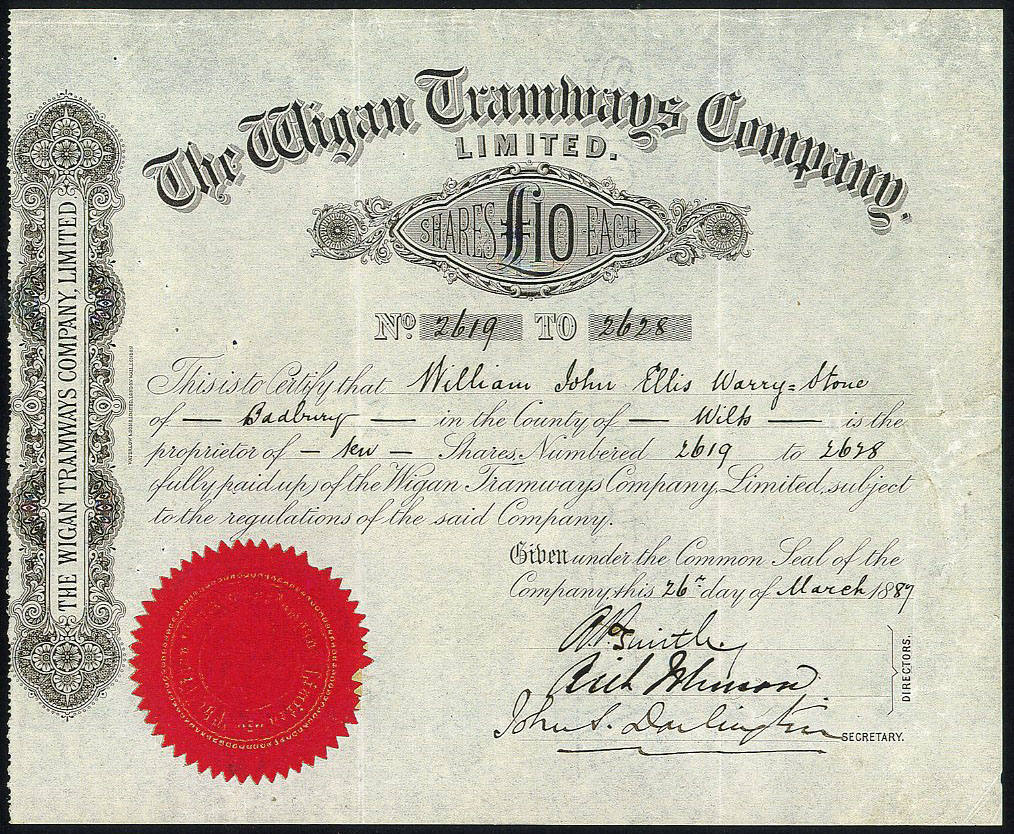 The Wigan Tramways Company,
LIMITED.
SHARES £10 EACH
No. 2619 TO 2628
This is to Certify that William John Ellis Warry=Stone
of — Badbury — in the County of — Wilts — is the
proprietor of — ten — Shares Numbered 2619 to 2628
(fully paid up) of the Wigan Tramways Company, Limited, subject
to the regulations of the said Company.
Given under the Common Seal of the
Company this 26th day of March 1887
Smith
Rich Johnson
DIRECTORS.
John S. Darlington
SECRETARY.
THE WIGAN TRAMWAYS COMPANY, LIMITED